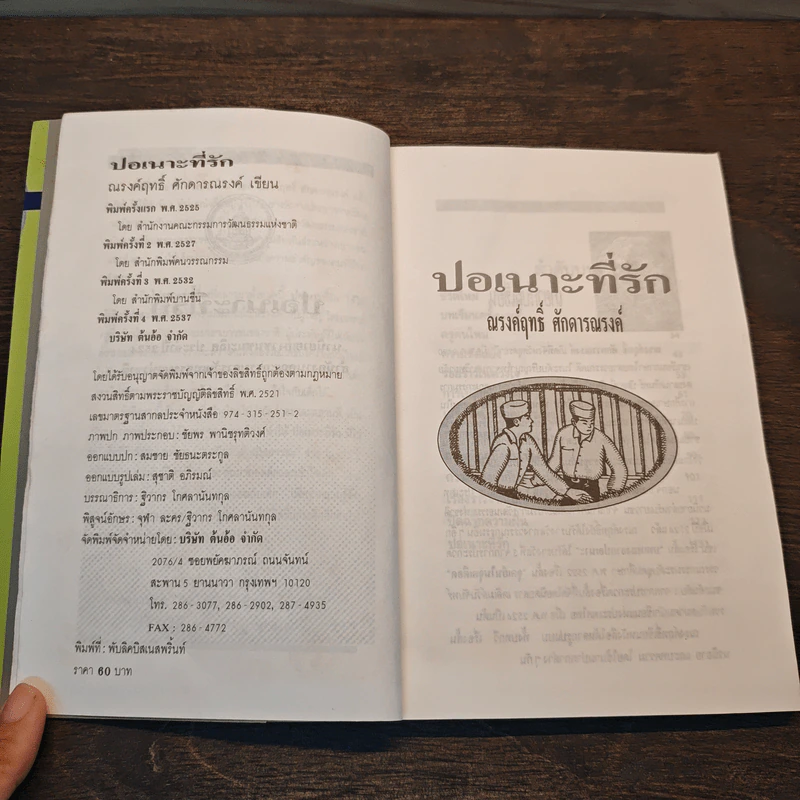 ปอเนาะที่รัก
ณรงค์ฤทธิ์ ศักดารณรงค์ เขียน
พิมพ์ครั้งแรก พ.ศ. 2525
โดย สำนักงานคณะกรรมการวัฒนธรรมแห่งชาติ
พิมพ์ครั้งที่ 2 พ.ศ. 2527
โดย สำนักพิมพ์คนวรรณกรรม
พิมพ์ครั้งที่ 3 พ.ศ. 2532
โดย สำนักพิมพ์บานชื่น
พิมพ์ครั้งที่ 4 พ.ศ. 2537
บริษัท ต้นอ้อ จำกัด
โดยได้รับอนุญาตจัดพิมพ์จากเจ้าของลิขสิทธิ์ถูกต้องตามกฎหมาย
สงวนสิทธิ์ตามพระราชบัญญัติลิขสิทธิ์ พ.ศ. 2521
เลขมาตรฐานสากลประจำหนังสือ 974-315-251-2
ภาพปก ภาพประกอบ : ชัยพร พานิชรุทติวงศ์
ออกแบบปก : สมชาย ชัยธนะตระกูล
ออกแบบรูปเล่ม : สุชาติ อภิรมณ์
บรรณาธิการ : ฐิวากร โกศลานันทกุล
พิสูจน์อักษร : จุฬา ละคร/ฐิวากร โกศลานันทกุล
จัดพิมพ์จัดจำหน่ายโดย : บริษัท ต้นอ้อ จำกัด
2076/4 ซอยพยัคฆาภรณ์ ถนนจันทน์
สะพาน 5 ยานนาวา กรุงเทพฯ 10120
โทร. 286-3077, 286-2902, 287-4935
FAX : 286-4772
พิมพ์ที่ : พับลิคบิสเนสพริ้นท์
ราคา 60 บาท
ปอเนาะที่รัก
ณรงค์ฤทธิ์ ศักดารณรงค์